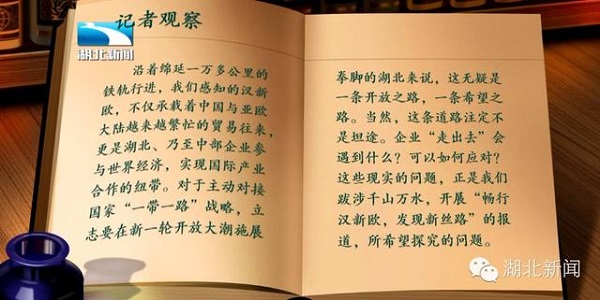 记者观察
湖北新闻
沿着绵延一万多公里的
铁轨行进，我们感知的汉新
欧，不仅承载着中国与亚欧
大陆越来越繁忙的贸易往来，
更是湖北、乃至中部企业参
与世界经济，实现国际产业
合作的纽带。对于主动对接
国家“一带一路”战略，立
志要在新一轮开放大潮施展
拳脚的湖北来说，这无疑是
一条开放之路，一条希望之
路。当然，这条道路注定不
是坦途。企业“走出去”会
遇到什么？可以如何应对？
这些现实的问题，正是我们
跋涉千山万水，开展“畅行
汉新欧，发现新丝路”的报
道，所希望探究的问题。
湖北新闻